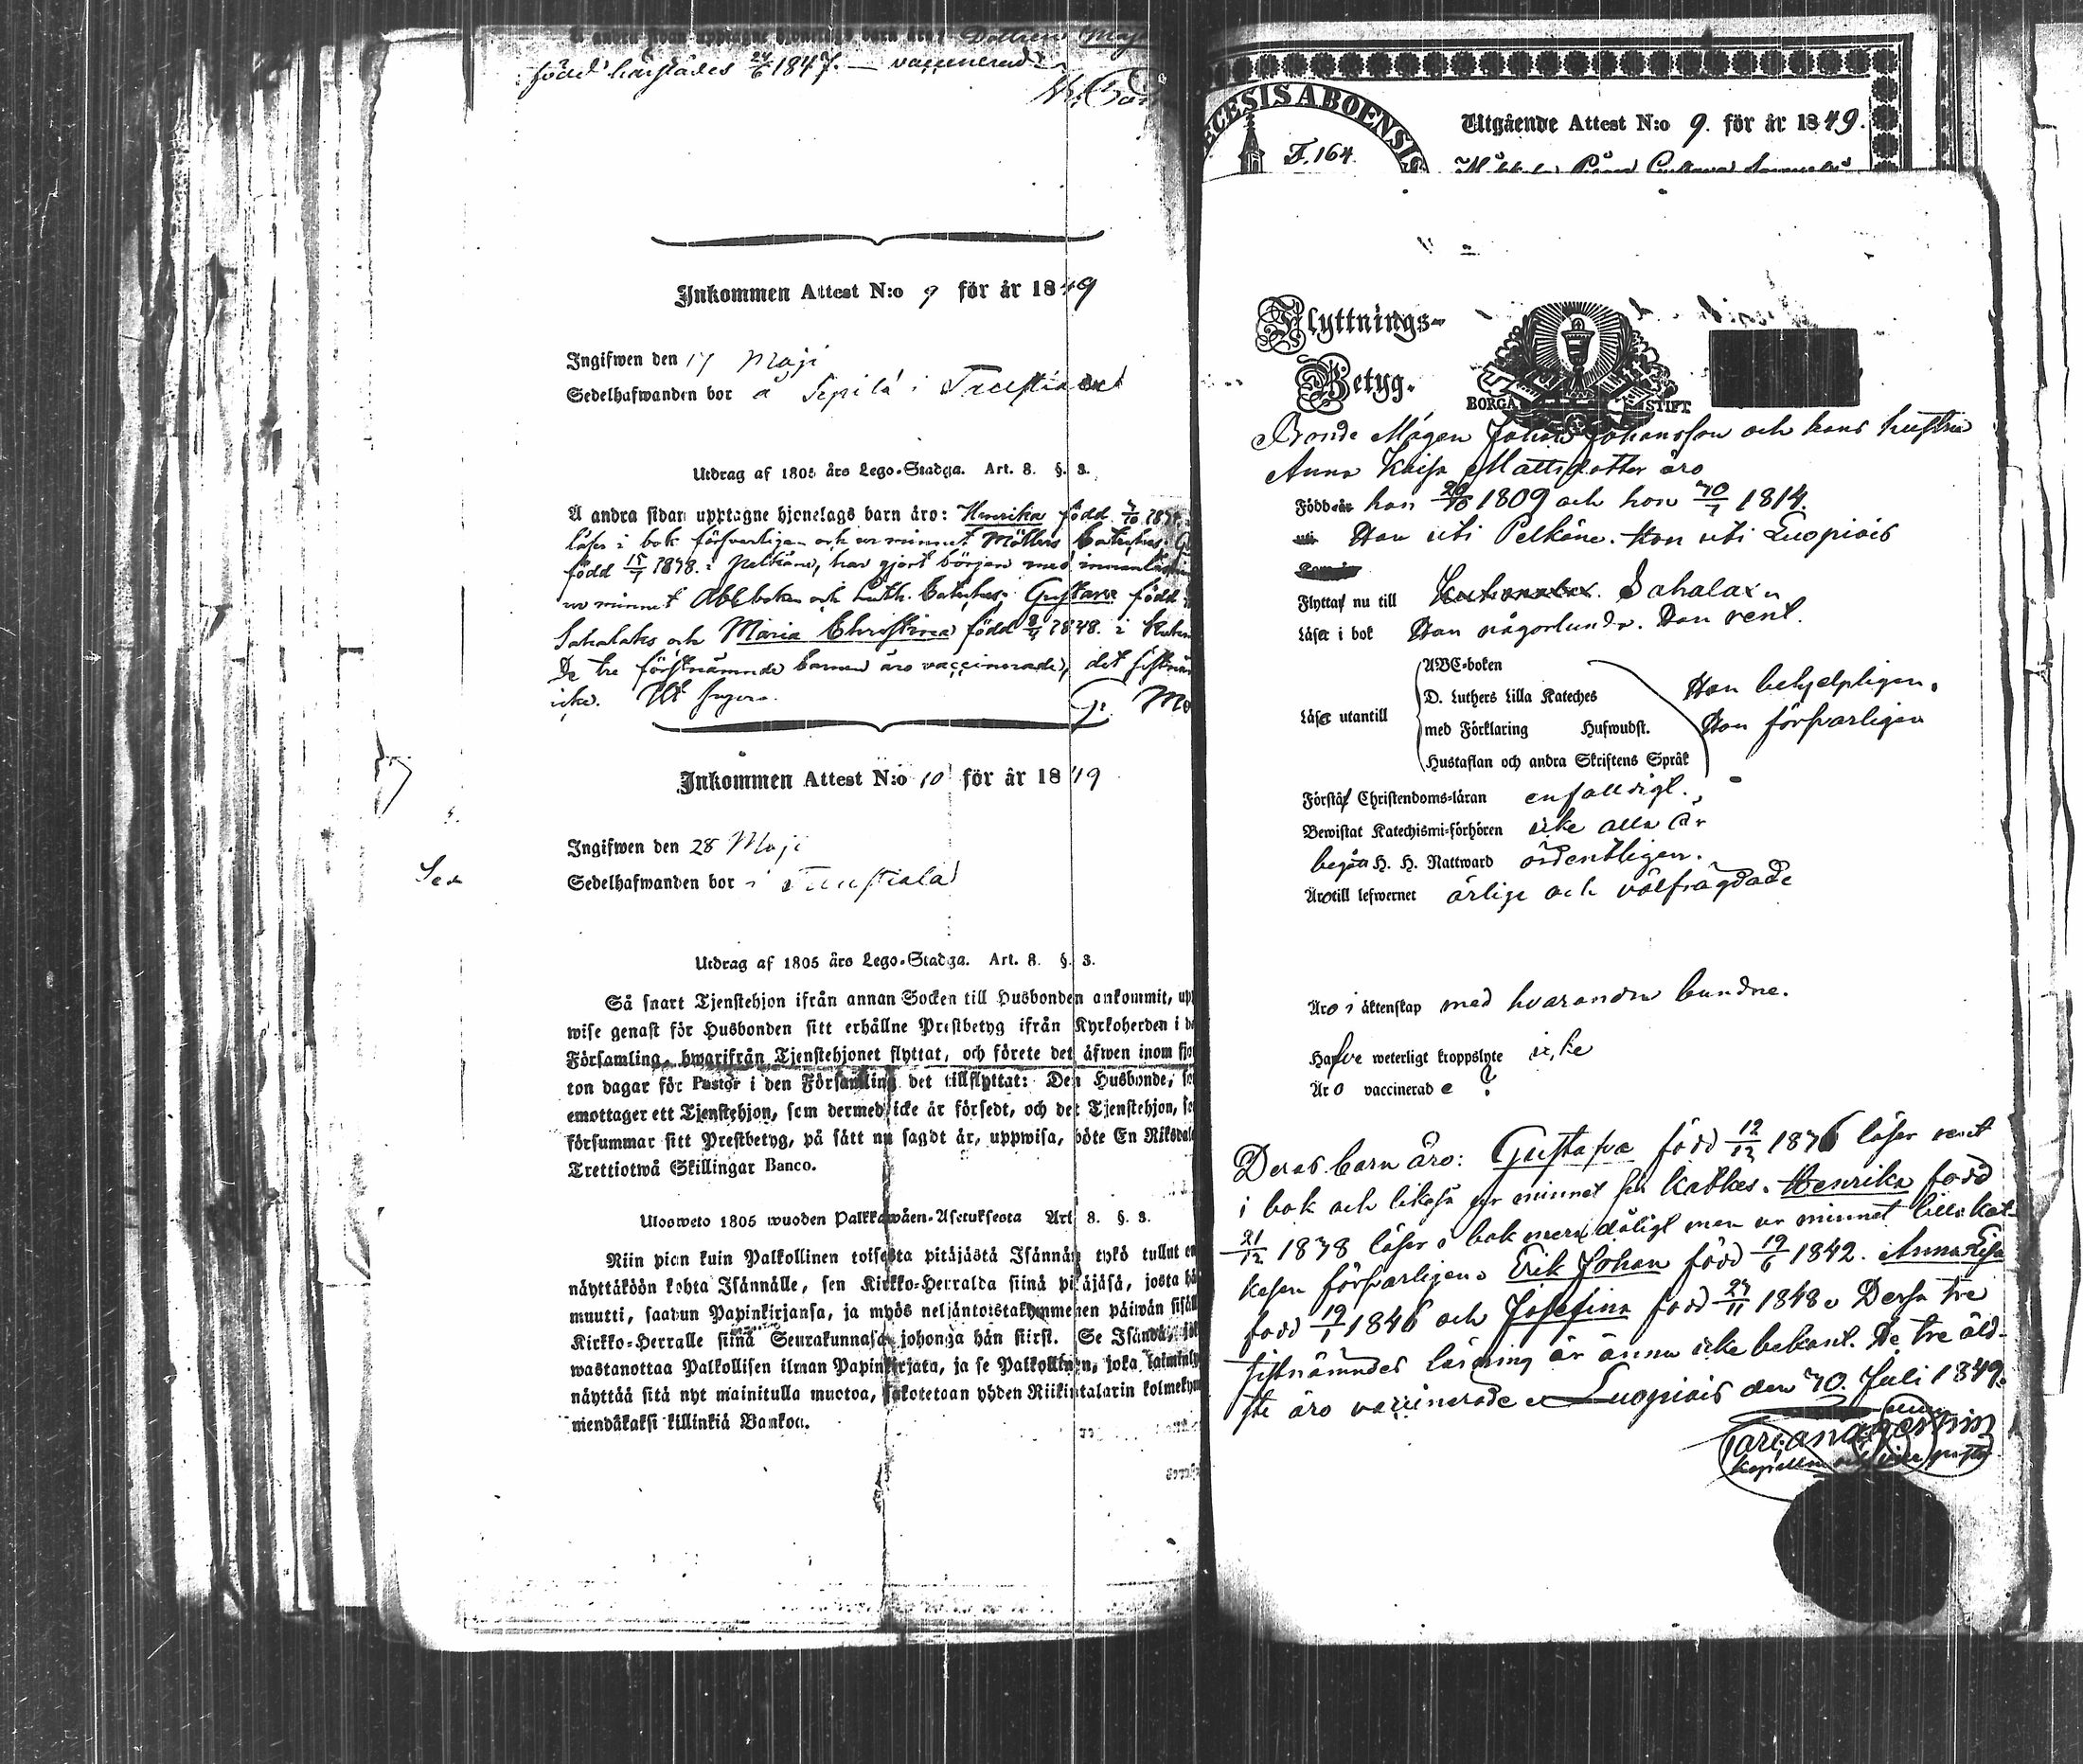 å andra sidan upptagne hjonelags barn äro: Dottren Maja
född härstädes 24/6 1847. — vaccinerad
Inkommen Attest N:o 9 för år 1849
Ingifwen den 17 Maji
Sedelhafwanden bor å Sepilä i
Utdrag af 1805 års Lego-Stadga. Art. 8. §. 3.
Å andra sidan upptagne hjonelags barn äro: Henrika född
läser i bok försvarligen och ur minnet Möllers Cateches.
född 15/7 1838. i Pelkäne, har gjort början med innanläsning
ur minnet Abc boken och Luth. Cateches. Gustava född
Sahalaks och Maria Christina född 8/4 1848. i
De tre förstnämnde barnen äro vaccinerade, det sistnäm
icke. Ut supra.
Inkommen Attest N:o 10 för år 1849
Ingifwen den 28 Maji
Sedelhafwanden bor i
Utdrag af 1805 års Lego-Stadga. Art. 8. §. 3.
Så snart Tjenstehjon ifrån annan Socken till Husbonden ankommit, upp
wise genast för Husbonden sitt erhållne Prestbetyg ifrån Kyrkoherden i de
Församling, hwarifrån Tjenstehjonet flyttat, och förete det äfwen inom fjor
ton dagar för Pastor i den Församling det tillflyttat: Den Husbonde, so
emottager ett Tjenstehjon, som dermed icke är försedt, och det Tjenstehjon, so
försummar sitt Prestbetyg, på sätt nu sagdt är, uppwisa, böte En Riksdal
Trettiotwå Skillingar Banco.
Ulosweto 1805 wuoden Palkkawäen-Asetuksesta Art. 8. §. 3.
Niin pian kuin Palkollinen toisesta pitäjästä Isännän tykö tullut on
näyttäköön kohta Isännälle, sen Kirkko-Herralda siinä pitäjäsä, josta hän
muutti, saadun Papinkirjansa, ja myös neljäntoistakymmenen päiwän sisäl
Kirkko-Herralle siinä Seurakunnasa johonga hän siirst. Se Isändä, jok
wastanottaa Palkollisen ilman Papinkirjata, ja se Palkollinen, joka laiminly
näyttää sitä nyt mainitulla muotoa, sakotetaan yhden Riikintalarin kolmekym
mendäkaksi killinkiä Bankoa.
ECESIS ABOENSIS
F. 164.
Utgående Attest N:o 9. för år 1849.
Flyttnings-
Betyg.
BORGÅ STIFT
Bonde Mågen Johan Johansson och hans hustru
Anna Kaisa Mattsdotter äro
Födde han 20/10 1809 och hon 30/7 1814.
Han uti Pelkäne. Hon uti Luopiois
Flyttat nu till Sahalax
Läser i bok Han någorlunda. Hon rent.
ABC-boken
D. Luthers Lilla Kateches
Han behjelpligen.
Läser utantill
med Förklaring Hufwudst.
Hon försvarligen
Hustaflan och andra Skriftens Språk
Förstår Christendoms-läran enfalldigt.
Bewistat Katechismi-förhören icke alla år
begått H. H. Nattward ordentligen.
Äro till lefwernet ärlige och välfrägdade
Äro i äktenskap med hvarandra bundne.
Hafve weterligt kroppslyte icke
Äro vaccinerade ?
Deras barn äro: Gustafva född 12/12 1836 läser rent
i bok och likaså ur minnet sin Katkes. Henrika född
21/12 1838 läser i bok mera dåligt men ur minnet lilla Kat
kesen försvarligen. Erik Johan född 19/6 1842. Anna Lisa
född 19/1 1846 och Josefina född 27/11 1848. Dessa tre
sistnämndes läsning är ännu icke bekant. De tre äld-
ste äro vaccinerade. Luopiois den 30. Juli 1849.